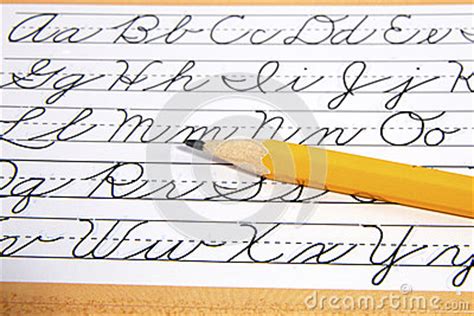 Aa Bb Cc Dd Ee
Gg Hh Ii Jj K
Ll Mm Nn Oo
Rr Ss
Ww Xx Yy
dreamstime.com